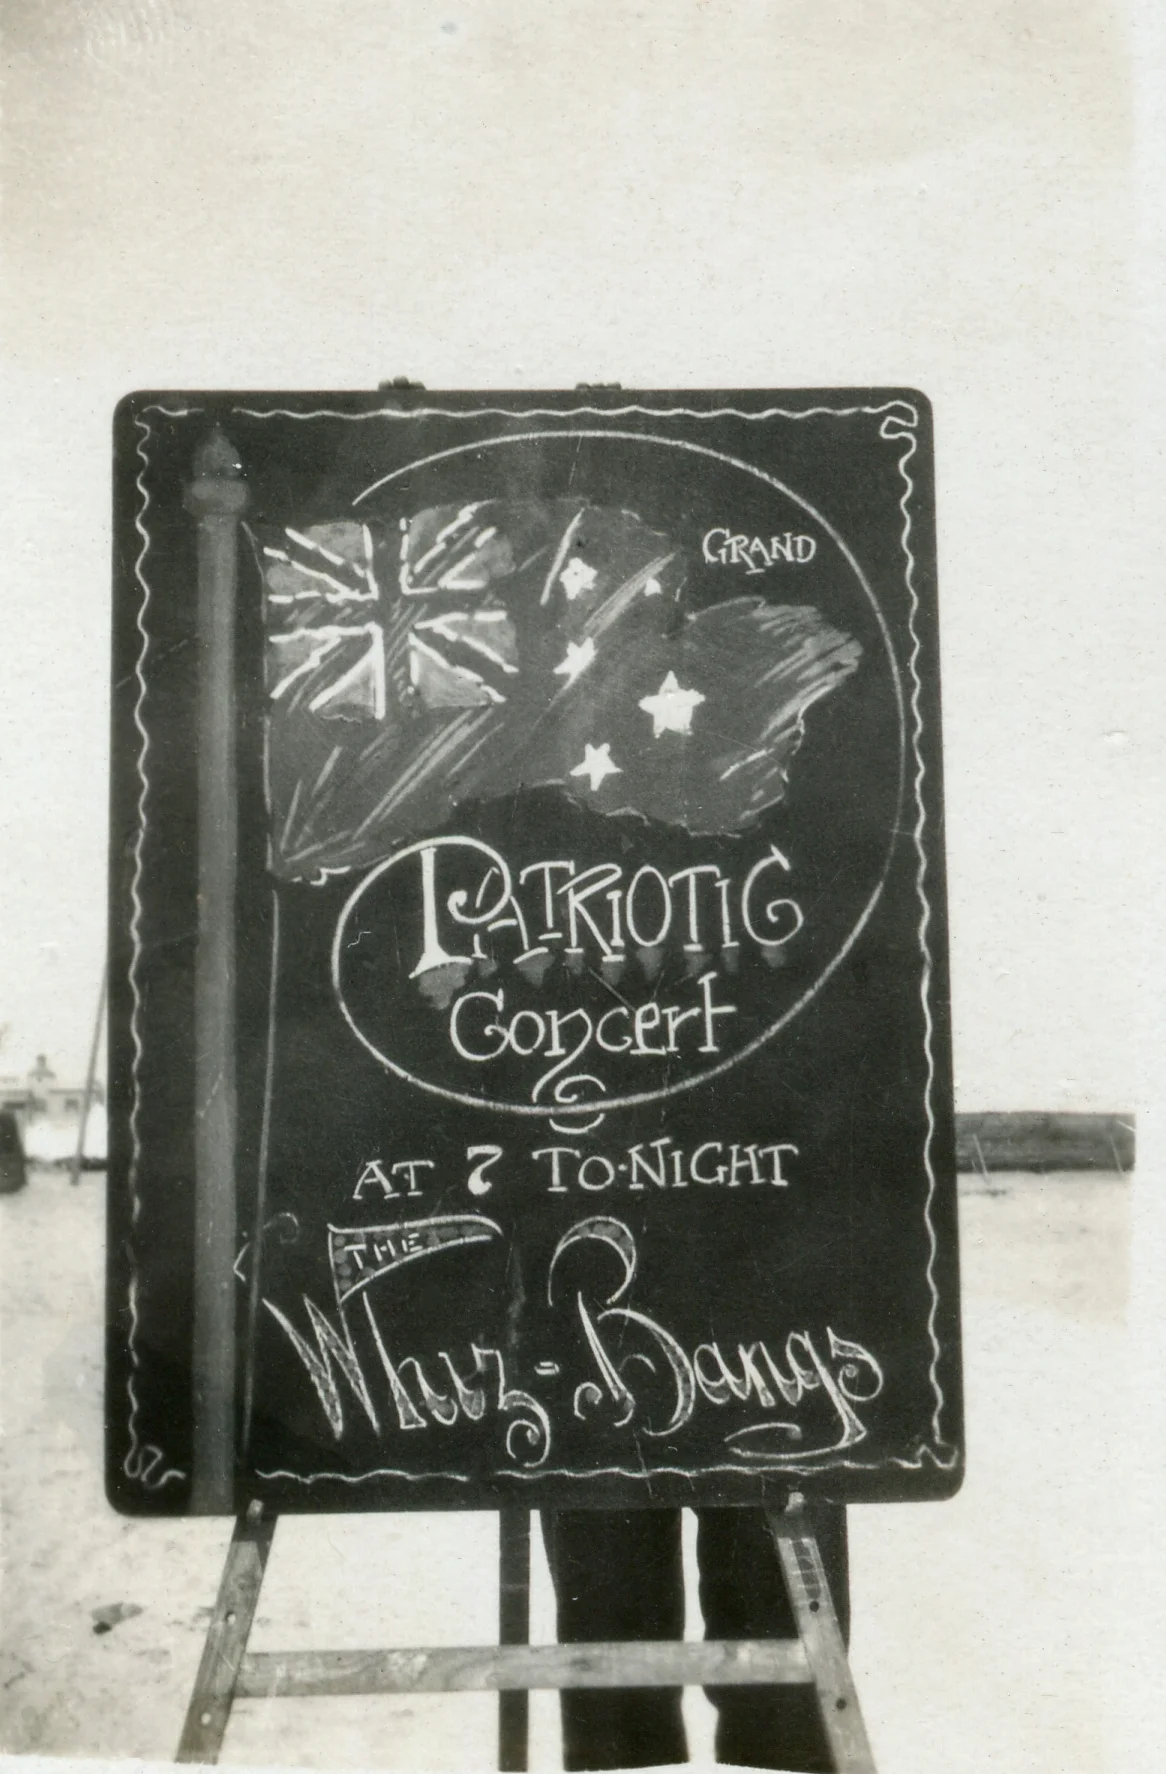 GRAND
PATRIOTIC
Concert
AT 7 TO-NIGHT
THE
Whiz-Bangs